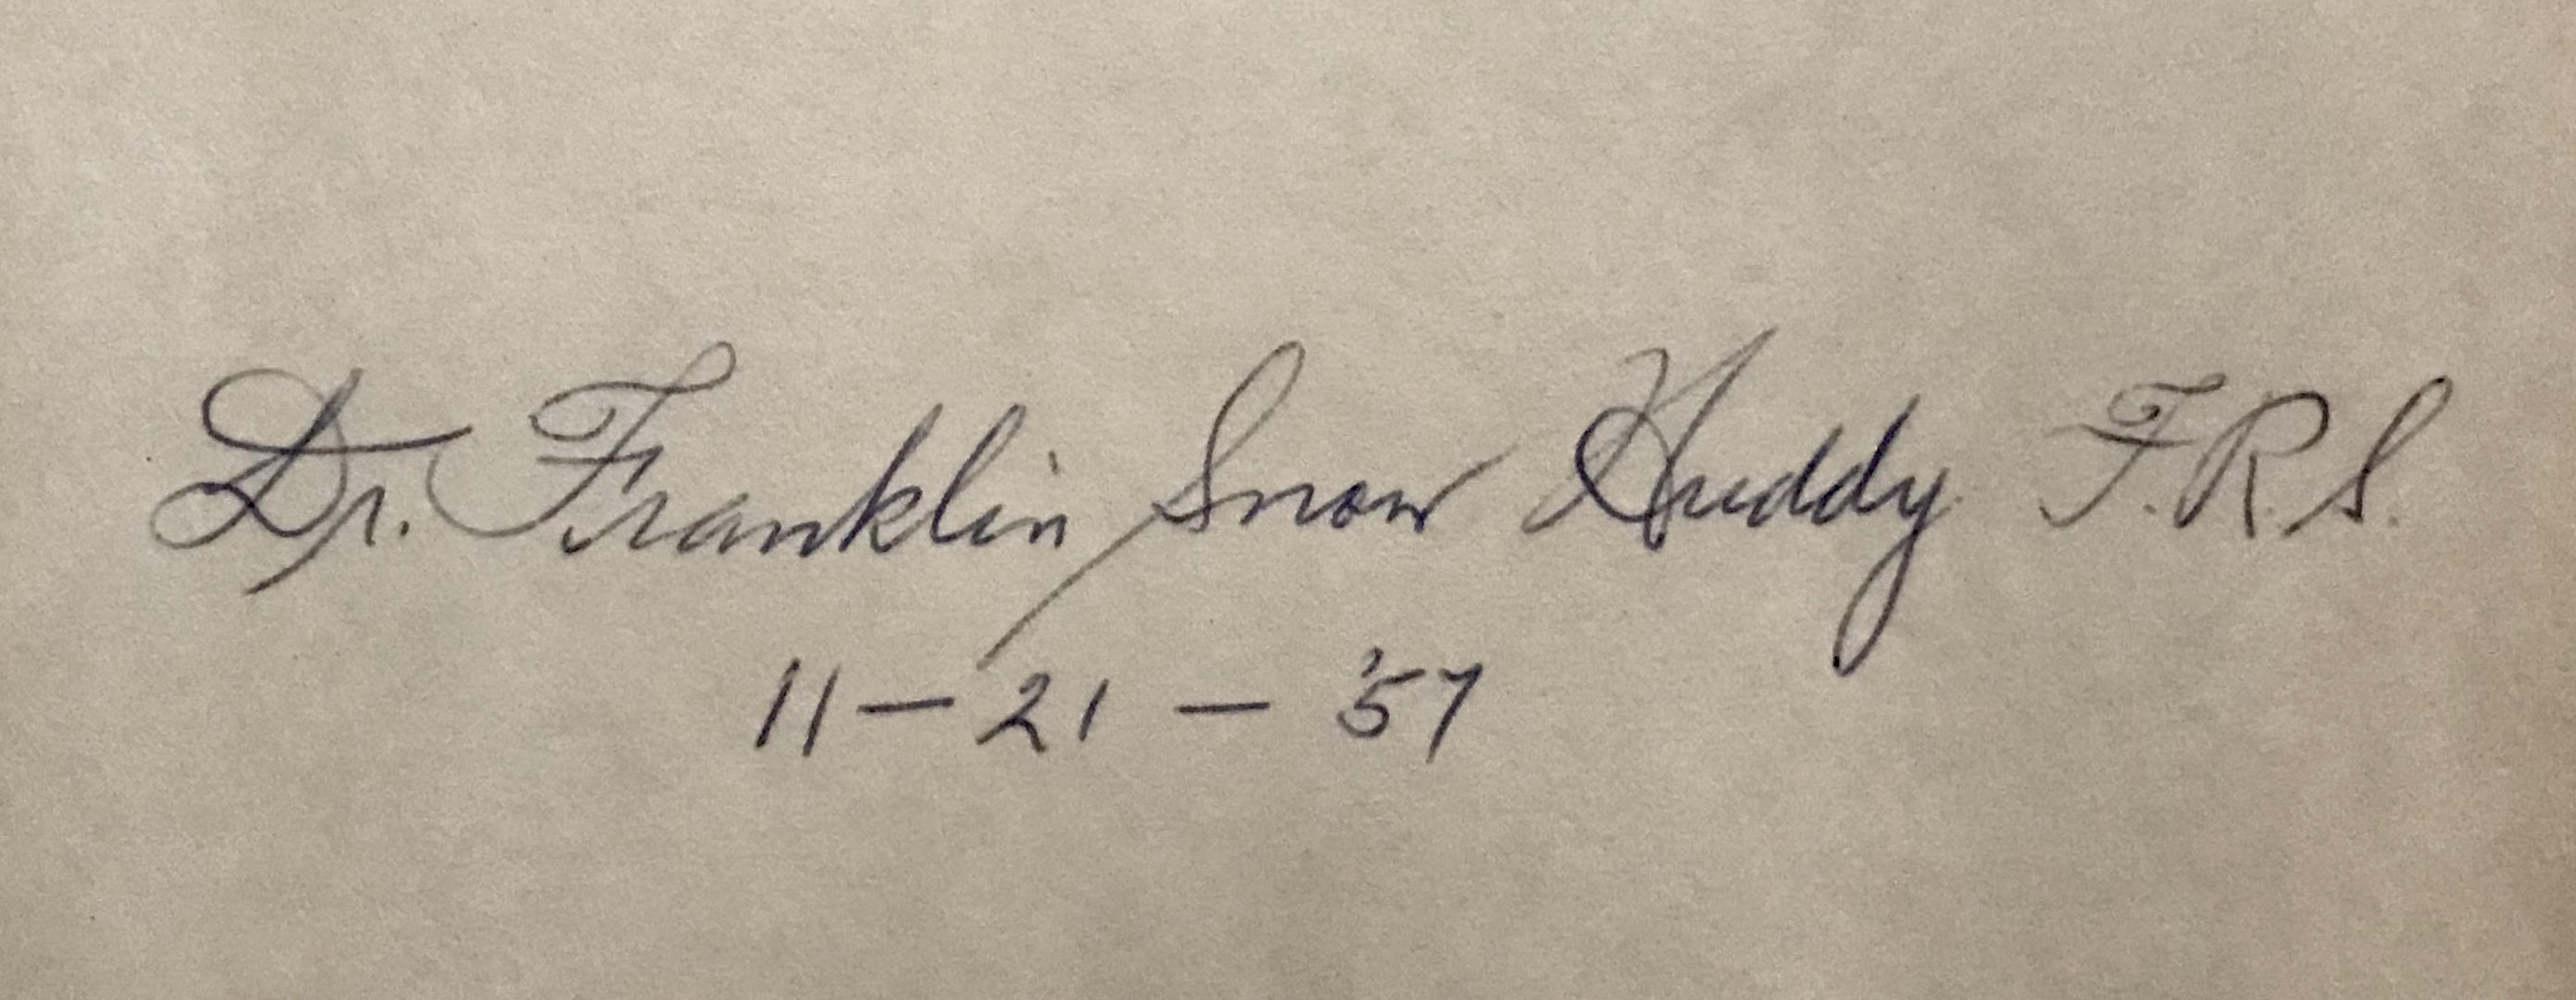 Dr. Franklin Snow Huddy F.R.S.
11-21-'57